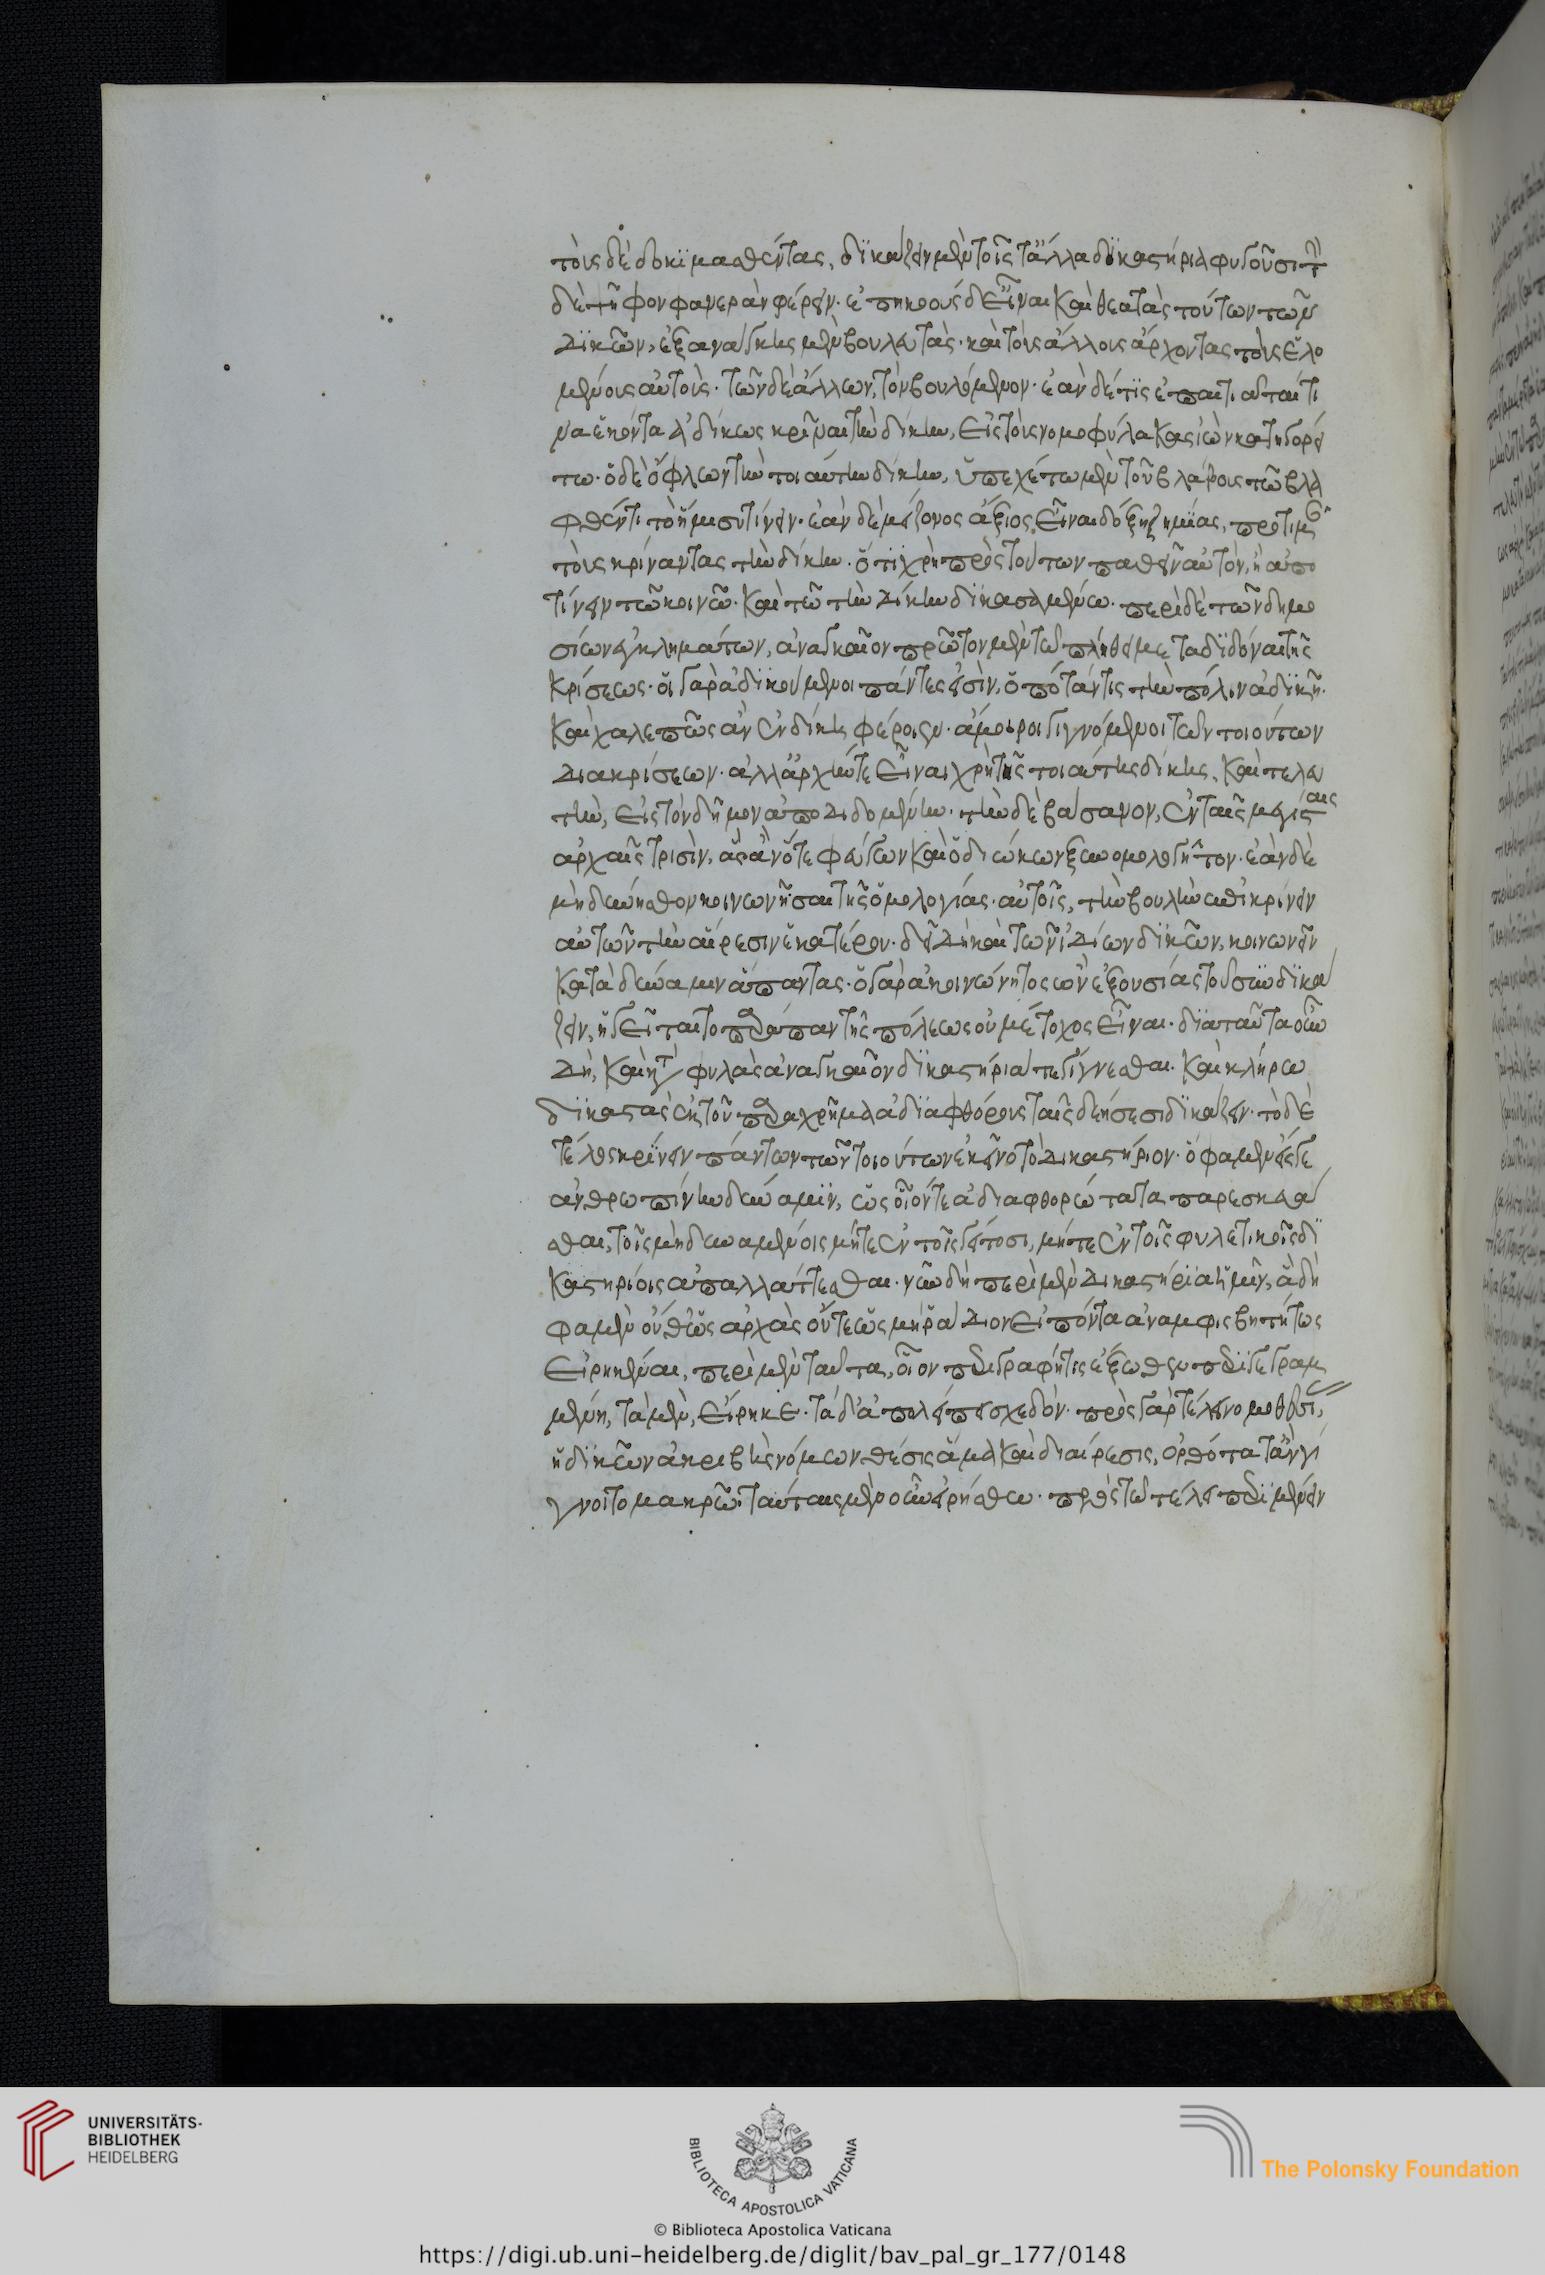 τοὺς δὲ δοκιμασθέντας, δικάζειν μὲν τοῖς τἄλλα δικαστήρια φυγοῦσι τὴν
δὲ ψῆφον φανερὰν φέρειν· ἐπηκόους δ' εἶναι καὶ θεατὰς τούτων τῶν
δικῶν, ἐξανάγκης μὲν βουλευτὰς· καὶ τοὺς ἄλλους ἄρχοντας τοὺς ἑλο
μένους αὐτοὺς· τῶν δὲ ἄλλων, τὸν βουλόμενον· ἐὰν δέ τις ἐπαιτιᾶταί τι
να ἑκόντα ἀδίκως κρῖναι τὴν δίκην, εἰς τοὺς νομοφύλακας ἰὼν κατηγορεί
τω· ὁ δὲ ὄφλων τὴν τοιαύτην δίκην, ὑπεχέτω μὲν τοῦ βλάβους τῶ βλα
φθέντι τὸ ἥμισυ τίνειν· ἐὰν δὲ μείζονος ἄξιος εἶναι δόξῃ ζημίας, προστιμᾶν
τοὺς κρίναντας τὴν δίκην· ὅτι χρὴ πρὸς τούτων παθεῖν αὐτὸν, ἢ ἀπο
τίνειν τῶ κοινῶ· καὶ τῶ τὴν δίκην δικασαμένω· περὶ δὲ τῶν δημο
σίων ἐγκλημάτων, ἀναγκαῖον πρῶτον μὲν τῶ πλήθει μεταδιδόναι τῆς
κρίσεως· οἱ γὰρ ἀδικούμενοι πάντες εἰσὶν, ὁπόταν τις τὴν πόλιν ἀδικῆ·
καὶ χαλεπῶς ἂν ἐν δίκης φέροιεν· ἄμοιροι γιγνόμενοι τῶν τοιούτων
διακρίσεων· ἀλλ' ἀρχήν τε εἶναι χρὴ τῆς τοιαύτης δίκης, καὶ τελευ
τὴν, εἰς τὸν δῆμον ἀποδιδομένην· τὴν δὲ βάσανον, ἐν ταῖς μεγίσταις
ἀρχαῖς τρισὶν, ἃς ἂν ὅτε φεύγων καὶ ὁ διώκων ξυνομολογῆτον· ἐὰν δὲ
μὴ δύνησθον κοινωνῆσαι τῆς ὁμολογίας· αὐτοῖς, τὴν βουλὴν ἐπικρίνειν
αὐτῶν τὴν αἵρεσιν ἑκατέρου· δεῖ δὴ καὶ τῶν ἰδίων δικῶν, κοινωνεῖν
κατὰ δύναμιν ἅπαντας· ὁ γὰρ ἀκοινώνητος ὢν ἐξουσίας τοῦ συνδικά
ζειν, ἡγεῖται τὸ παράπαν τῆς πόλεως οὐ μέτοχος εἶναι· διὰ ταῦτα οὖν
δὴ, καὶ κατὰ φυλὰς ἀναγκαῖον δικαστήριά τε γίγνεσθαι· καὶ κλήρω
δικαστὰς ἐκ τοῦ παραχρῆμα ἀδιαφθόρους ταῖς δεήσεσι δικάζειν· τὸ δὲ
τέλος κρίνειν πάντων τῶν τοιούτων ἐκεῖνο τὸ δικαστήριον· ὅ φαμεν εἴς γε
ἀνθρωπίνην δύναμιν, ὡς οἷόν τε ἀδιαφθορώτατα παρεσκευά
σθαι, τοῖς μὴ δυναμένοις μήτε ἐν τοῖς γείτοσι, μήτε ἐν τοῖς φυλετικοῖς δι
καστηρίοις ἀπαλλάττεσθαι· νῦν δὴ περὶ μὲν δικαστήρια ἡμῖν, ἃ δή
φαμεν οὔθ' ὡς ἀρχὰς οὔτε ὡς μὴ ῥάδιον εἰπόντα ἀναμφισβητήτως
εἰρηκέναι, περὶ μὲν ταῦτα, οἷον περιγραφή τις ἔξωθεν περιγεγραμ
μένη, τὰ μὲν, εἴρηκε· τὰ δ' ἀπολείπει σχεδόν· πρὸς γὰρ τέλει νομοθεσί,
ἡ δικῶν ἀκριβὴς νόμων θέσις ἅμα καὶ διαίρεσις, ὀρθότατ' ἂν γί
γνοιτο μακρῶ· ταύταις μὲν οὖν εἰρήσθω· πρὸς τῶ τέλει περιμένειν
UNIVERSITÄTS-
BIBLIOTHEK
HEIDELBERG
BIBLIOTECA APOSTOLICA VATICANA
© Biblioteca Apostolica Vaticana
The Polonsky Foundation
https://digi.ub.uni-heidelberg.de/diglit/bav_pal_gr_177/0148